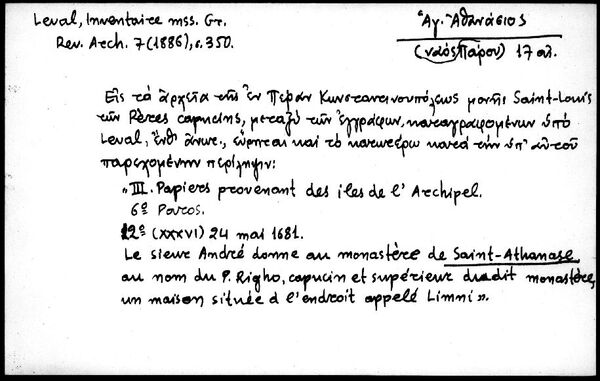 Leval, Inventaire mss. Gr.
Rev. Arch. 7 (1886), σ. 350.
Ἁγ. Ἀθανάσιος
(ναὸς Πάρου) 17 αἰ.
Εἰς τὰ ἀρχεῖα τῆς ἐν Πέραν Κωνσταντινουπόλεως μονῆς Saint-Louis
τῶν Pères capucins, μεταξὺ τῶν ἐγγράφων, καταγραφομένων ὑπὸ
Leval, ἔνθ' ἄνωτ., εὕρηται καὶ τὸ κατωτέρω κατὰ τὴν ὑπ' αὐτοῦ
παρεχομένην περίληψιν:
"III. Papiers provenant des iles de l'Archipel.
6º Paros.
12º (XXXVI) 24 mai 1681.
Le sieur André donne au monastère de Saint-Athanase
au nom du P. Righo, capucin et supérieur dudit monastère,
un maison située d l'endroit appelé Limni».